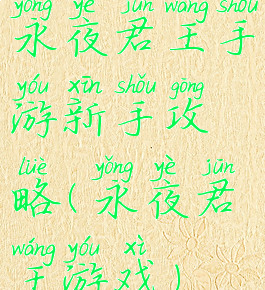 yǒng yè jūn wáng shǒu
永夜君王手
yóu xīn shǒu gōng
游新手攻
lüè yǒng yè jūn
略(永夜君
wáng yóu xì
王游戏)